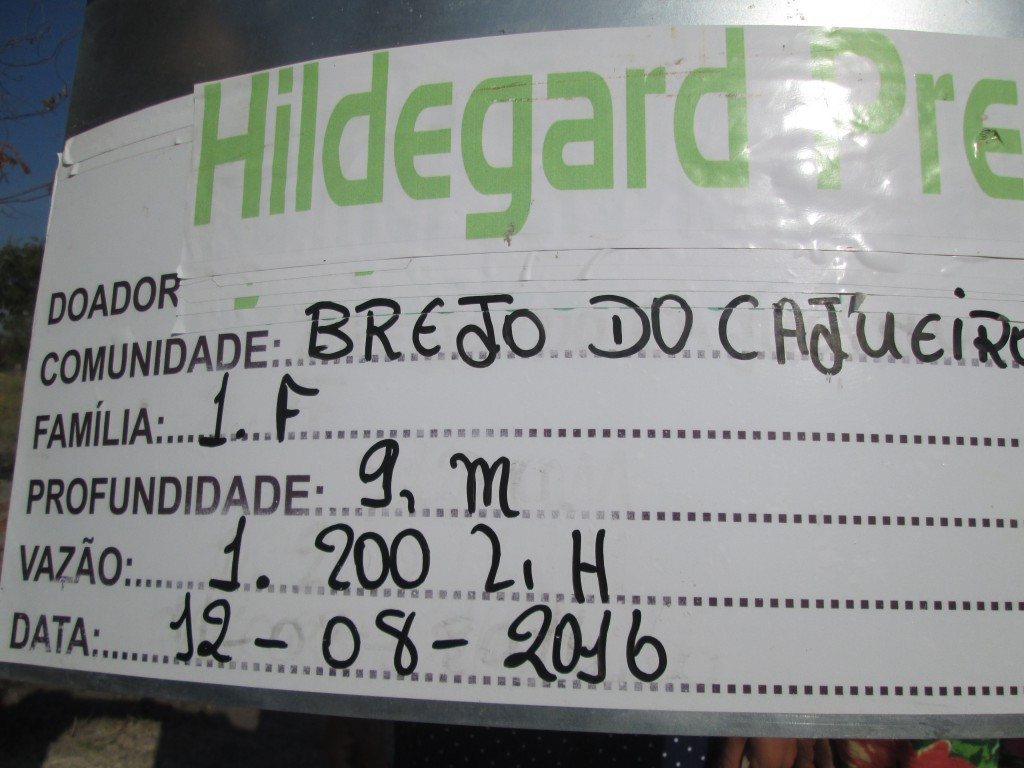 Hildegard Pre
DOADOR
COMUNIDADE: BREJO DO CAJUEIRO
FAMÍLIA: 1. F
PROFUNDIDADE: 9, m
VAZÃO: 1. 200 L, H
DATA: 12-08-2016